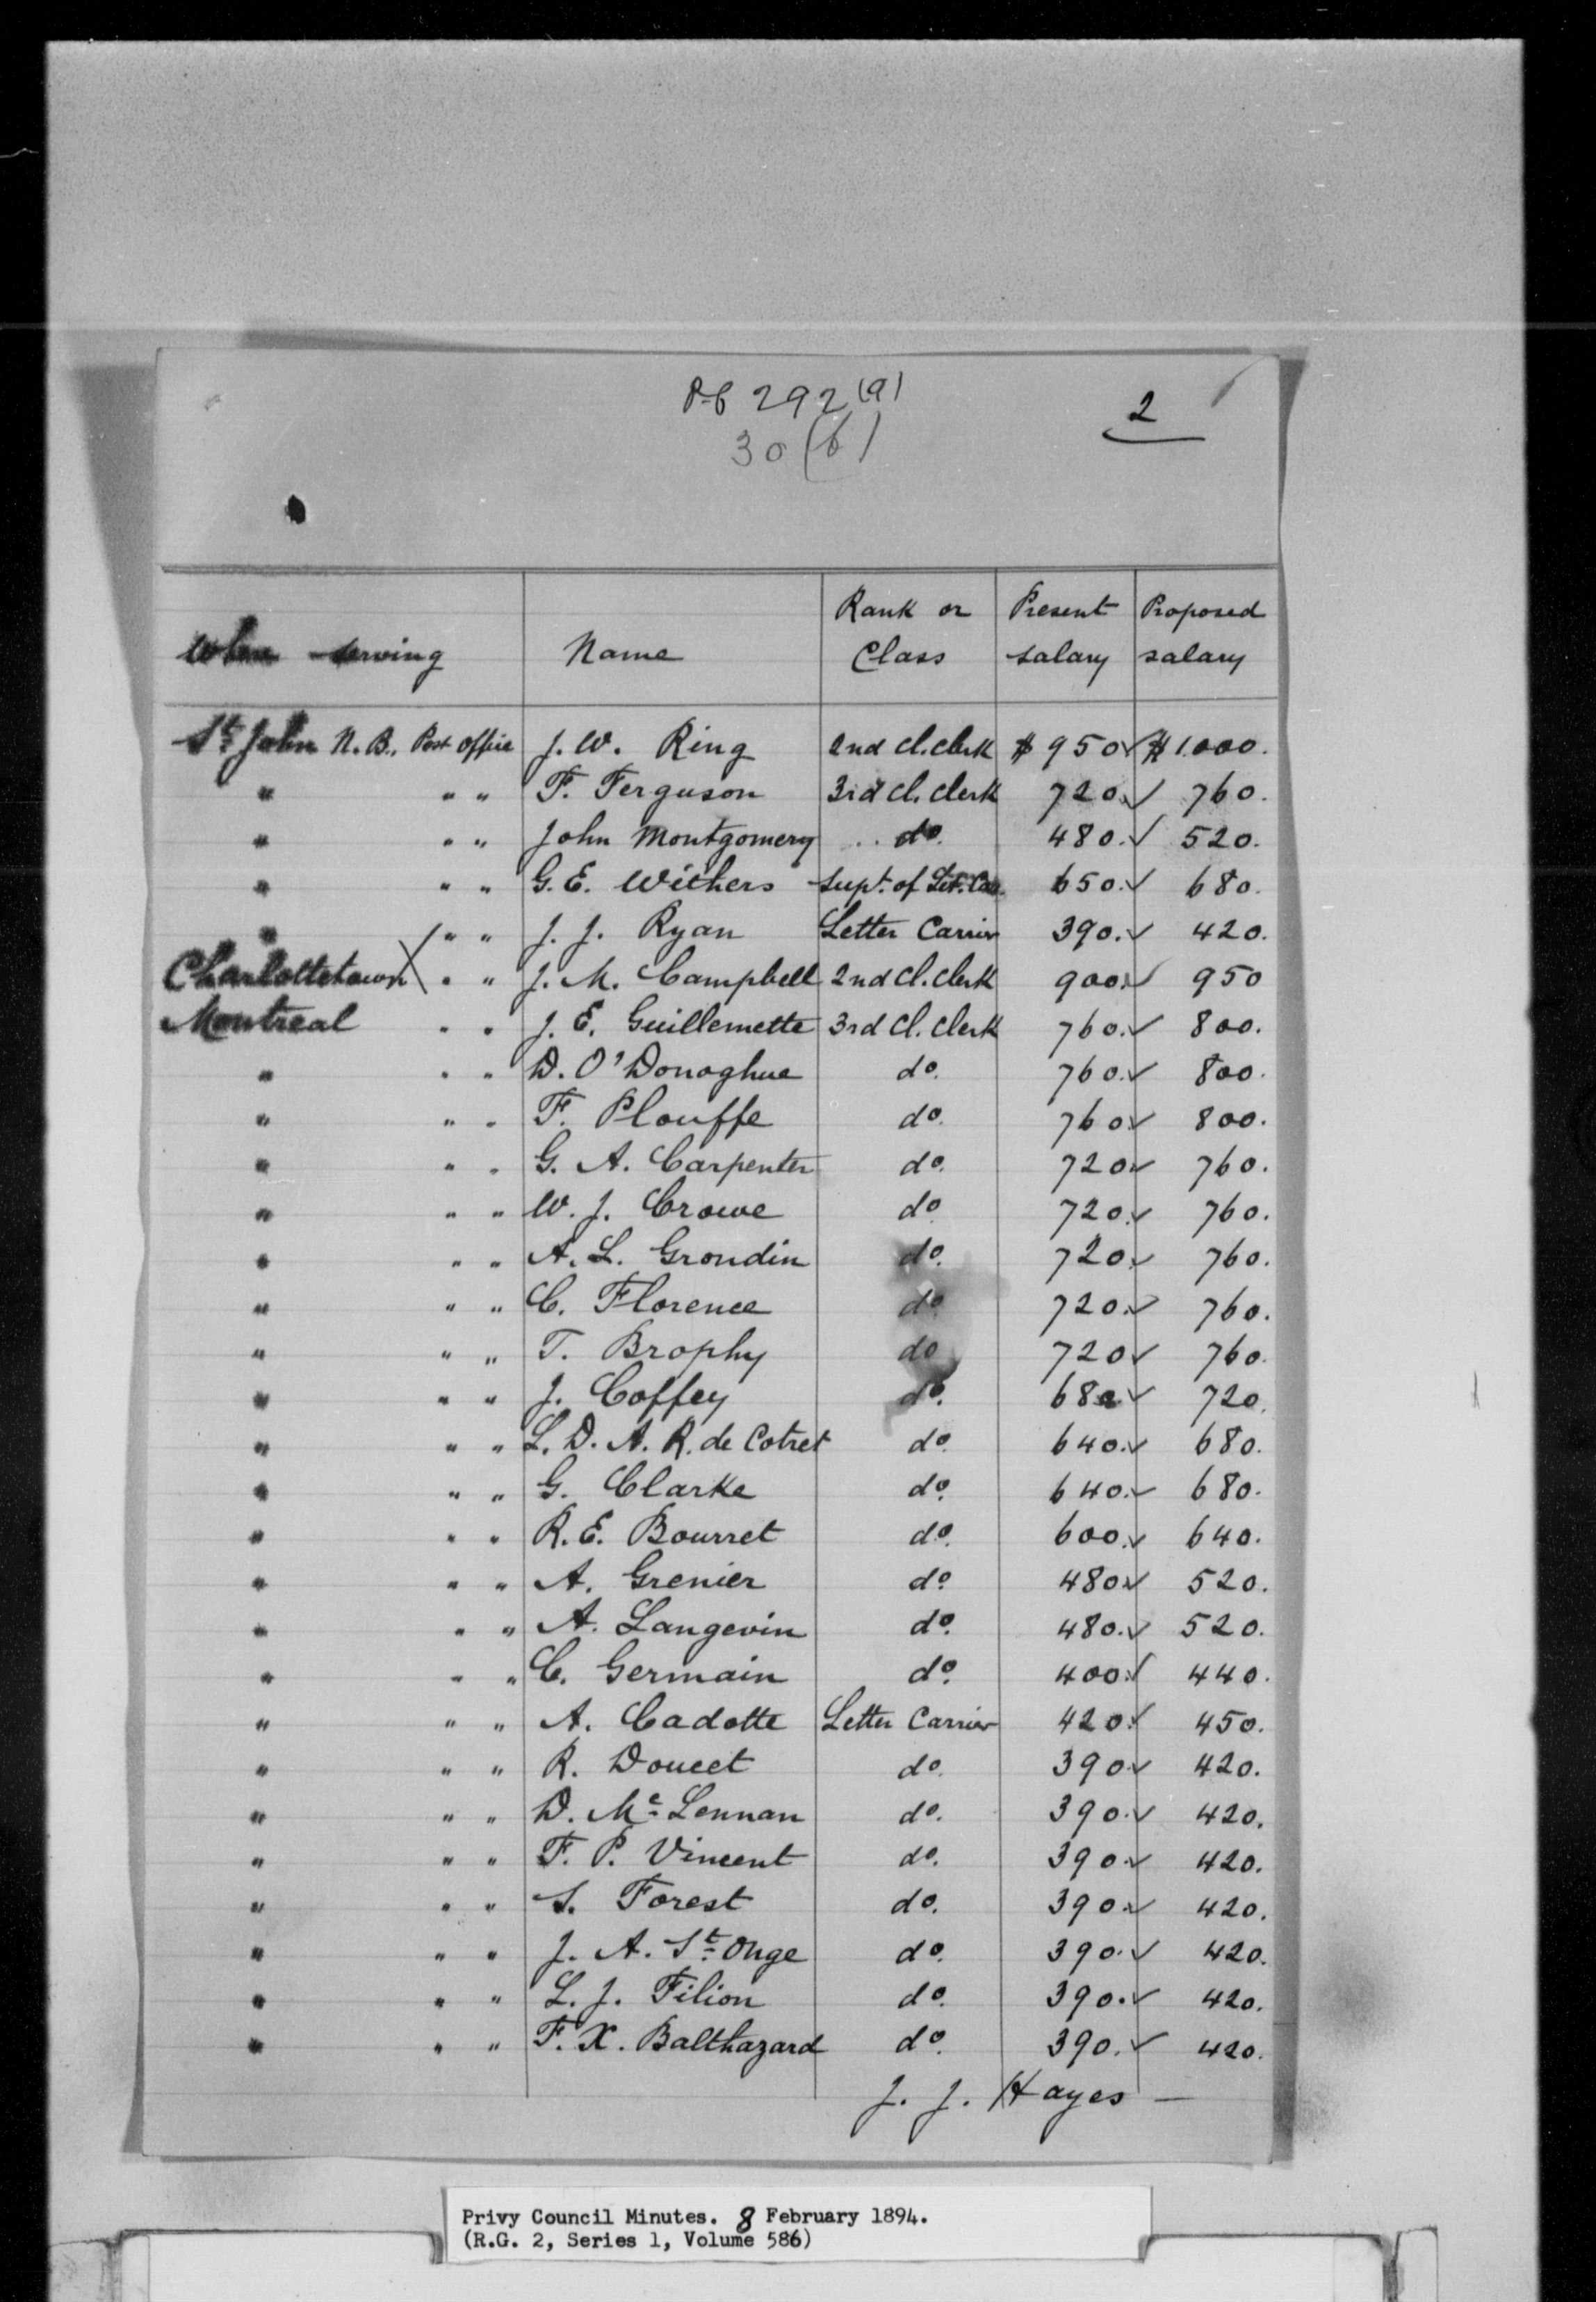 P.C 292 (a)
30 (b)
2
Where serving Name Rank or Class Present salary Proposed salary
St. John N.B. Post Office J. W. Ring 2nd Cl. Clerk $950 $1.000.
" " " F. Ferguson 3rd Cl. Clerk 720. 760.
" " " John Montgomery do. 480. 520.
" " " G. E. Withers Supt. of Let. Car. 650. 680.
" " " J. J. Ryan Letter Carrier 390. 420.
Charlottetown " " J. M. Campbell 2nd Cl. Clerk 900. 950
Montreal " " J. E. Guillemette 3rd Cl. Clerk 760. 800.
" " " D. O'Donoghue do. 760. 800.
" " " F. Plouffe do. 760. 800.
" " " G. A. Carpenter do. 720. 760.
" " " W. J. Crowe do 720. 760.
" " " A. L. Grondin do. 720. 760.
" " " C. Florence do 720. 760.
" " " T. Brophy do 720 760.
" " " J. Coffey do. 680 720.
" " " L. D. A. R. de Cotret do. 640. 680.
" " " G. Clarke do. 640. 680.
" " " R. E. Bourret do. 600. 640.
" " " A. Grenier do. 480. 520.
" " " A. Langevin do. 480. 520.
" " " C. Germain do. 400. 440.
" " " A. Cadotte Letter Carrier 420. 450.
" " " R. Doucet do. 390. 420.
" " " D. Mc Lennan do. 390. 420.
" " " F. P. Vincent do. 390. 420.
" " " S. Forest do. 390. 420.
" " " J. A. St. Onge do. 390. 420.
" " " L. J. Filion do. 390. 420.
" " " F. X. Balthazard do. 390. 420.
J. J. Hayes —
Privy Council Minutes. 8 February 1894.
(R.G. 2, Series 1, Volume 586)